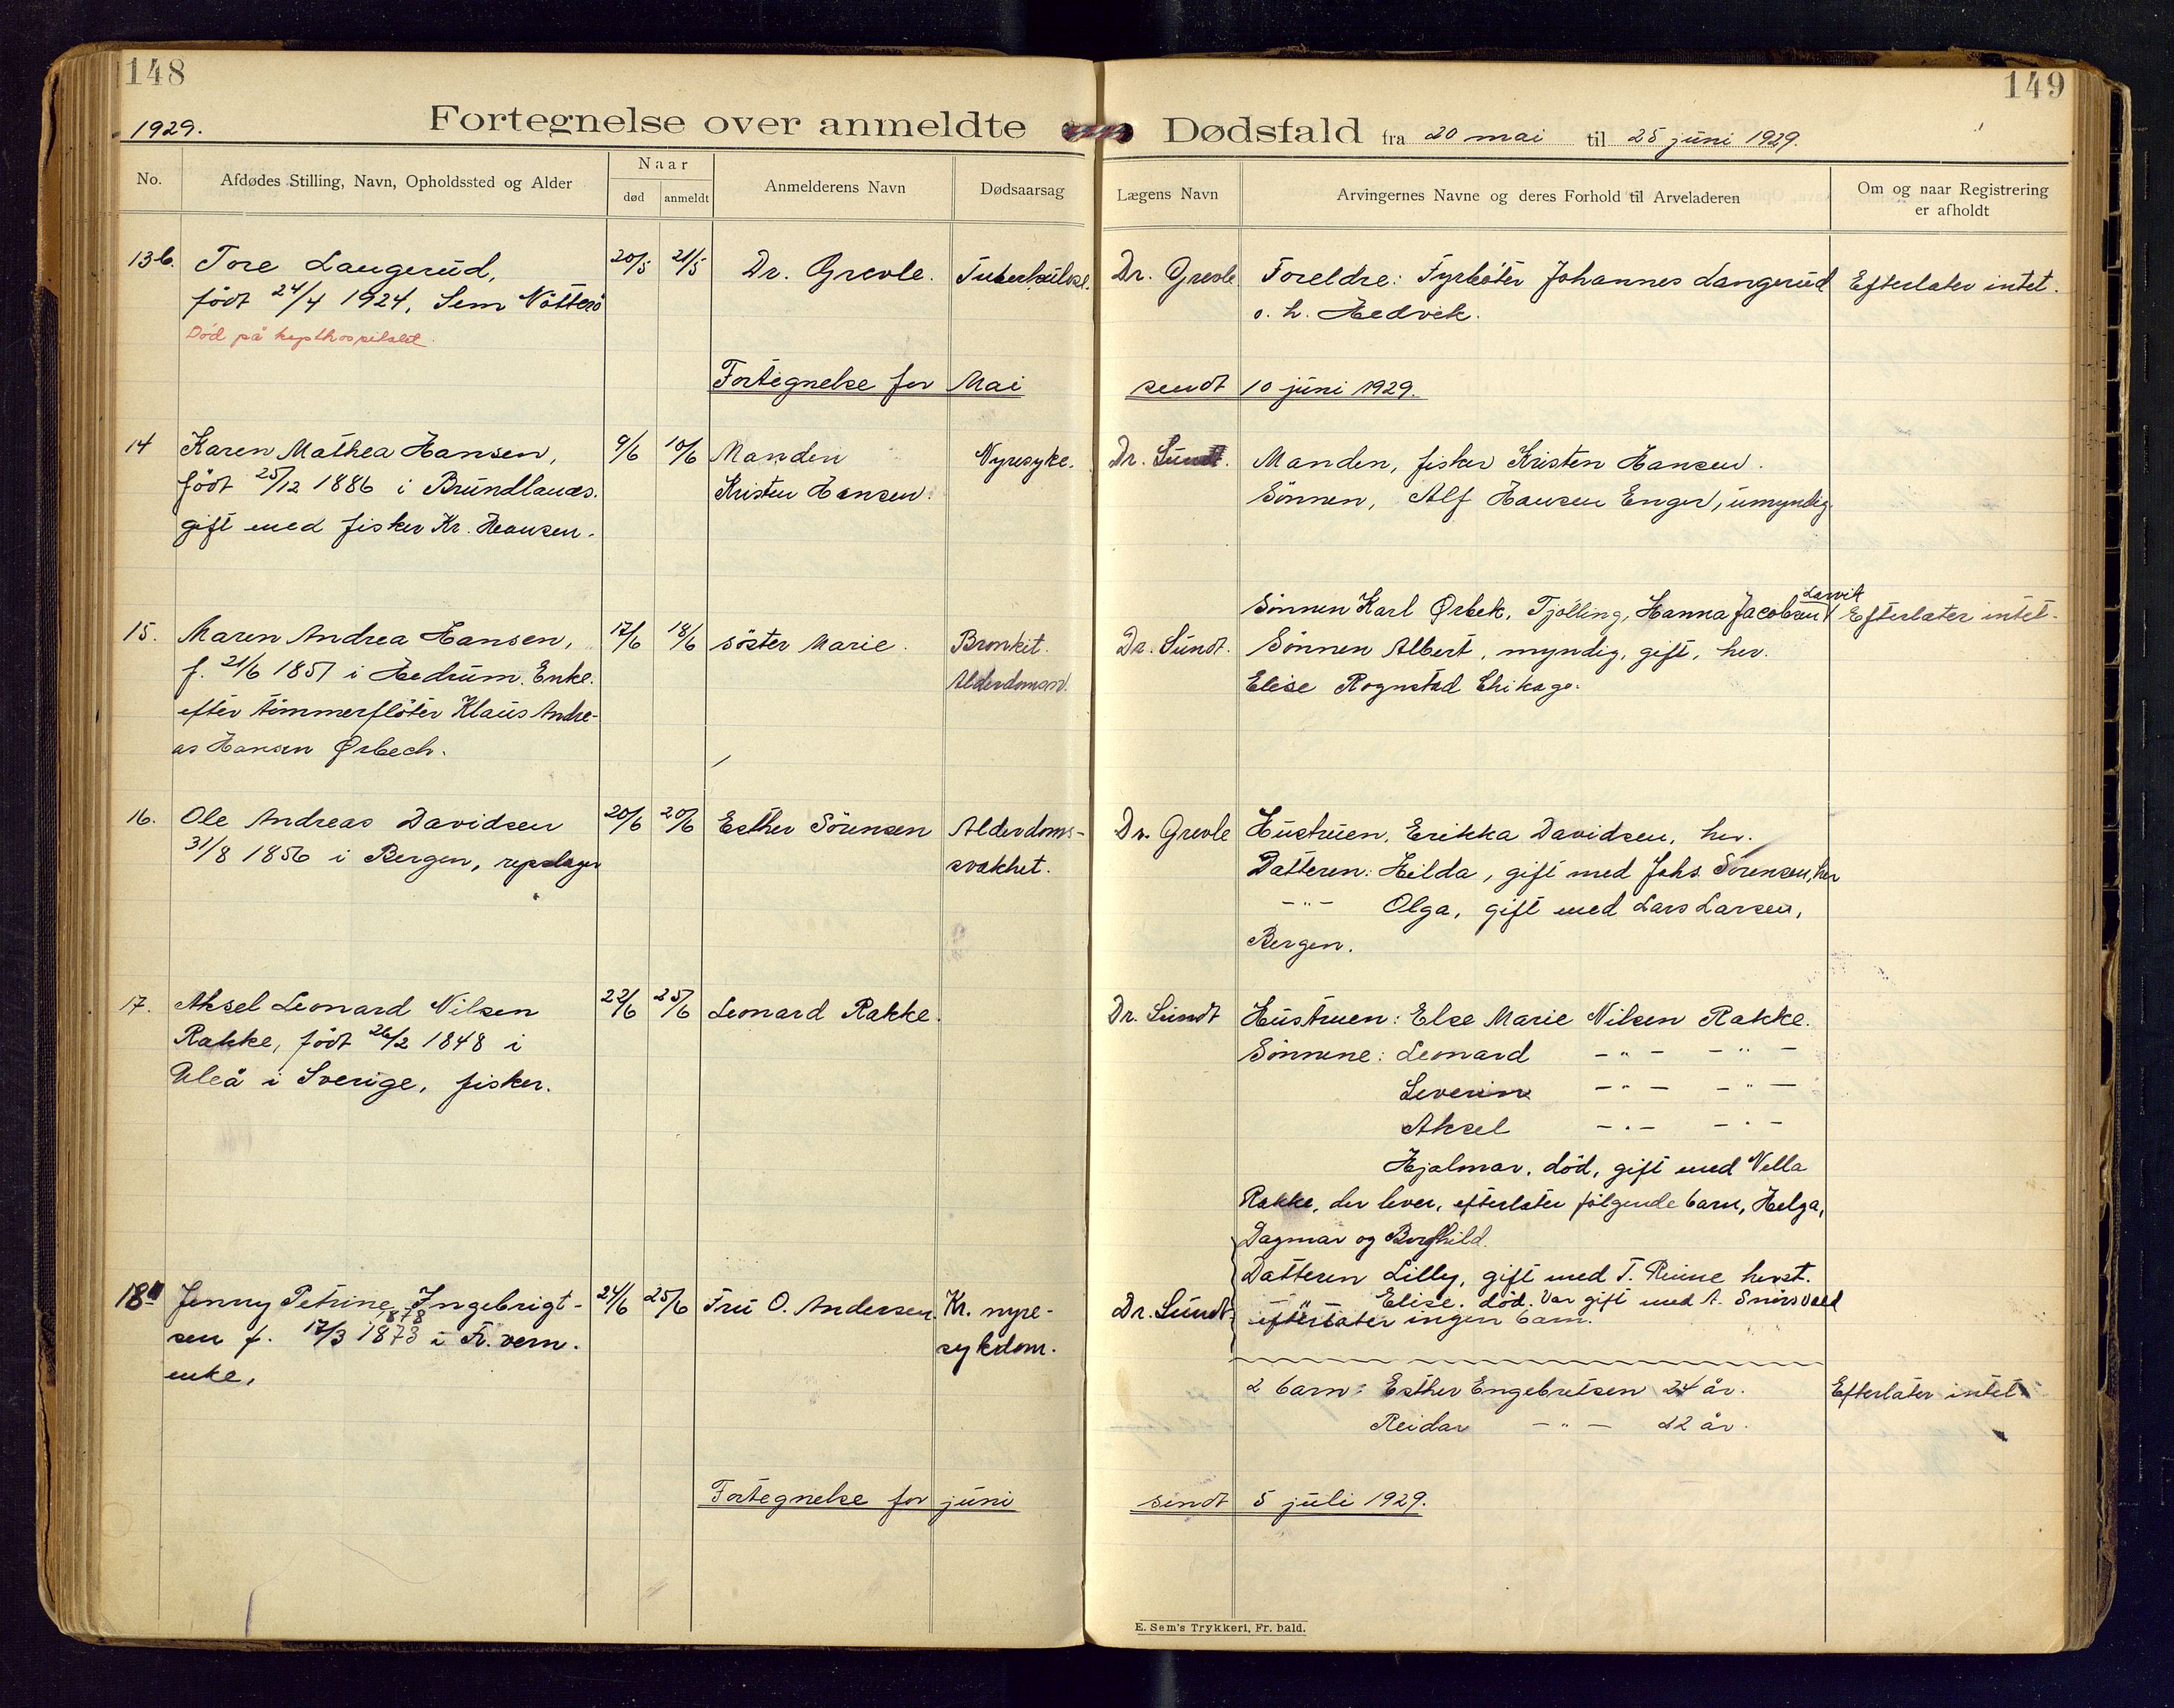 148
149
1929.
Fortegnelse over anmeldte Dødsfald fra 20 mai til 25 juni 1929.
No.
Afdødes Stilling, Navn, Opholdssted og Alder
Naar
død
anmeldt
Anmelderens Navn
Dødsaarsag
Lægens Navn
Arvingernes Navne og deres Forhold til Arveladeren
Om og naar Registrering
er afholdt
13b. Tore Langerud, 20/5 21/5 Dr. Grevle. Tuberkulose. Dr. Grevle Foreldre: Fyrbøter Johannes Langerud Efterlater intet.
født 24/4 1924, Sem Nøtterø o. h. Hedvik.
Død på kysthospitalet.
Fortegnelse for Mai sendt 10 juni 1929.
14 Karen Mathea Hansen, 9/6 10/6 Manden Nyresyke. Dr. Sundt. Manden, fisker Kristen Hansen.
født 25/12 1886 i Brundlanæs. Kristen Hansen. Sønnen, Alf Hansen Enger, umyndig.
gift med fisker Kr. Hansen.
Larvik
Sønnen Karl Ørbek, Tjølling, Hanna Jacobsen Efterlater intet.
15. Maren Andrea Hansen, 17/6 18/6 søster Marie. Bronkit. Dr. Sundt. Sønnen Albert, myndig, gift, her.
f. 21/6 1851 i Hedrum. Enke. Alderdomssv. Elise Rognstad Chikago.
efter tømmerfløter Klaus Andre-
as Hansen Ørbech.
16. Ole Andreas Davidsen 20/6 20/6 Esther Sørensen Alderdoms- Dr. Grevle Hustruen, Erikka Davidsen, her.
31/8 1856 i Bergen, repslager svakhet. Datteren: Hilda, gift med Johs. Sørensen, her
-"- Olga, gift med Lars Larsen,
Bergen.
17. Aksel Leonard Nilsen 22/6 25/6 Leonard Rakke. Dr. Sundt Hustruen: Else Marie Nilsen Rakke.
Rakke, født 26/2 1848 i Sønnene: Leonard -"- -"-
Uleå i Sverige, fisker. Severin -"- -"-
Aksel -"- -"-
Hjalmar, død, gift med Nella
Rakke, der lever, efterlater følgende barn, Helga,
Dagmar og Borghild.
Datteren Lilly, gift med T. herst.
18 Jenny Petrine Ingebrigt- 24/6 25/6 Fru O. Andersen. Kr. nyre- Dr. Sundt. " Elise. død. Var gift med A.
1878
sen f. 17/3 1873 i Fr.vern. sykdom. efterlater ingen barn.
enke.
2 barn: Esther Engebretsen 24 år. Efterlater intet
Reidar -"- 22 år.
Fortegnelse for juni sendt 5 juli 1929.
E. Sem's Trykkeri, Fr. hald.